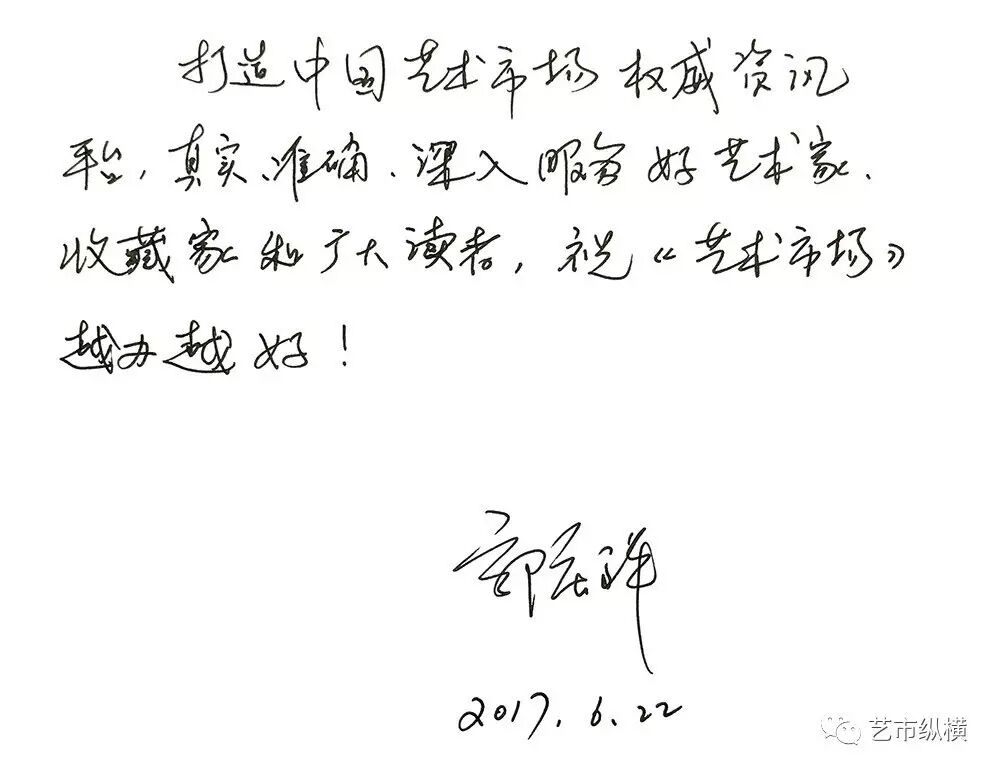 打造中国艺术市场权威资讯
平台，真实、准确、深入服务好艺术家、
收藏家和广大读者，祝《艺术市场》
越办越好！
郭庆祥
2017.6.22
艺市纵横